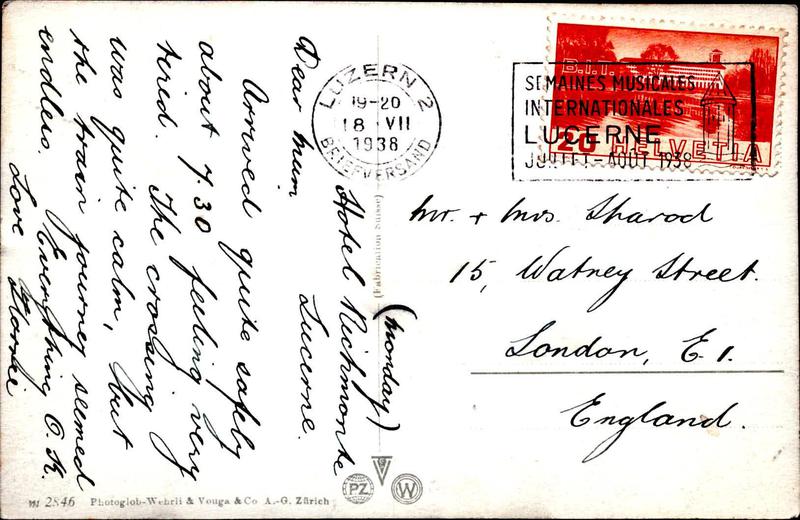 Hotel Richmonte
Lucerne.
(Monday)
Dear Mum
Arrived quite safely
about 7.30 feeling very
tired. The crossing
was quite calm, but
the train journey seemed
endless. Everything O.K.
Love
LUZERN 2
19-20
18 VII
1938
BRIEFVERSAND
SEMAINES MUSICALES
INTERNATIONALES
LUCERNE
JUILLET-AOUT 1938
B.I.T.
20 HELVETIA
Mr. + Mrs. Sharod
15, Watney Street.
London, E.1.
England.
(Fabrication suisse)
PZ
W
2846 Photoglob-Wehrli & Vouga & Co A.-G. Zürich